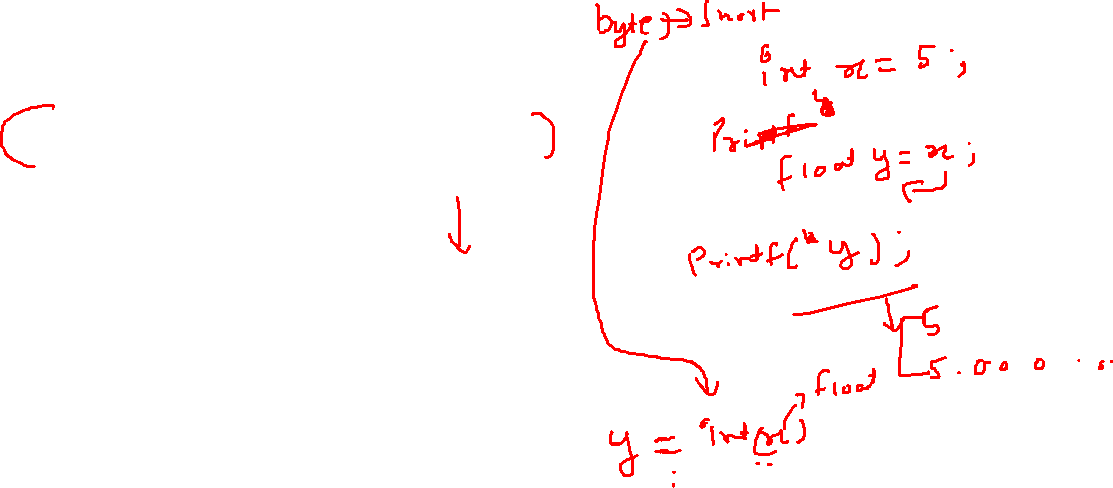 byte → Short
int x = 5 ;
Printf "
float y = x ;
Printf(" y) ;
5
5.000 ..
float
y = int(x)